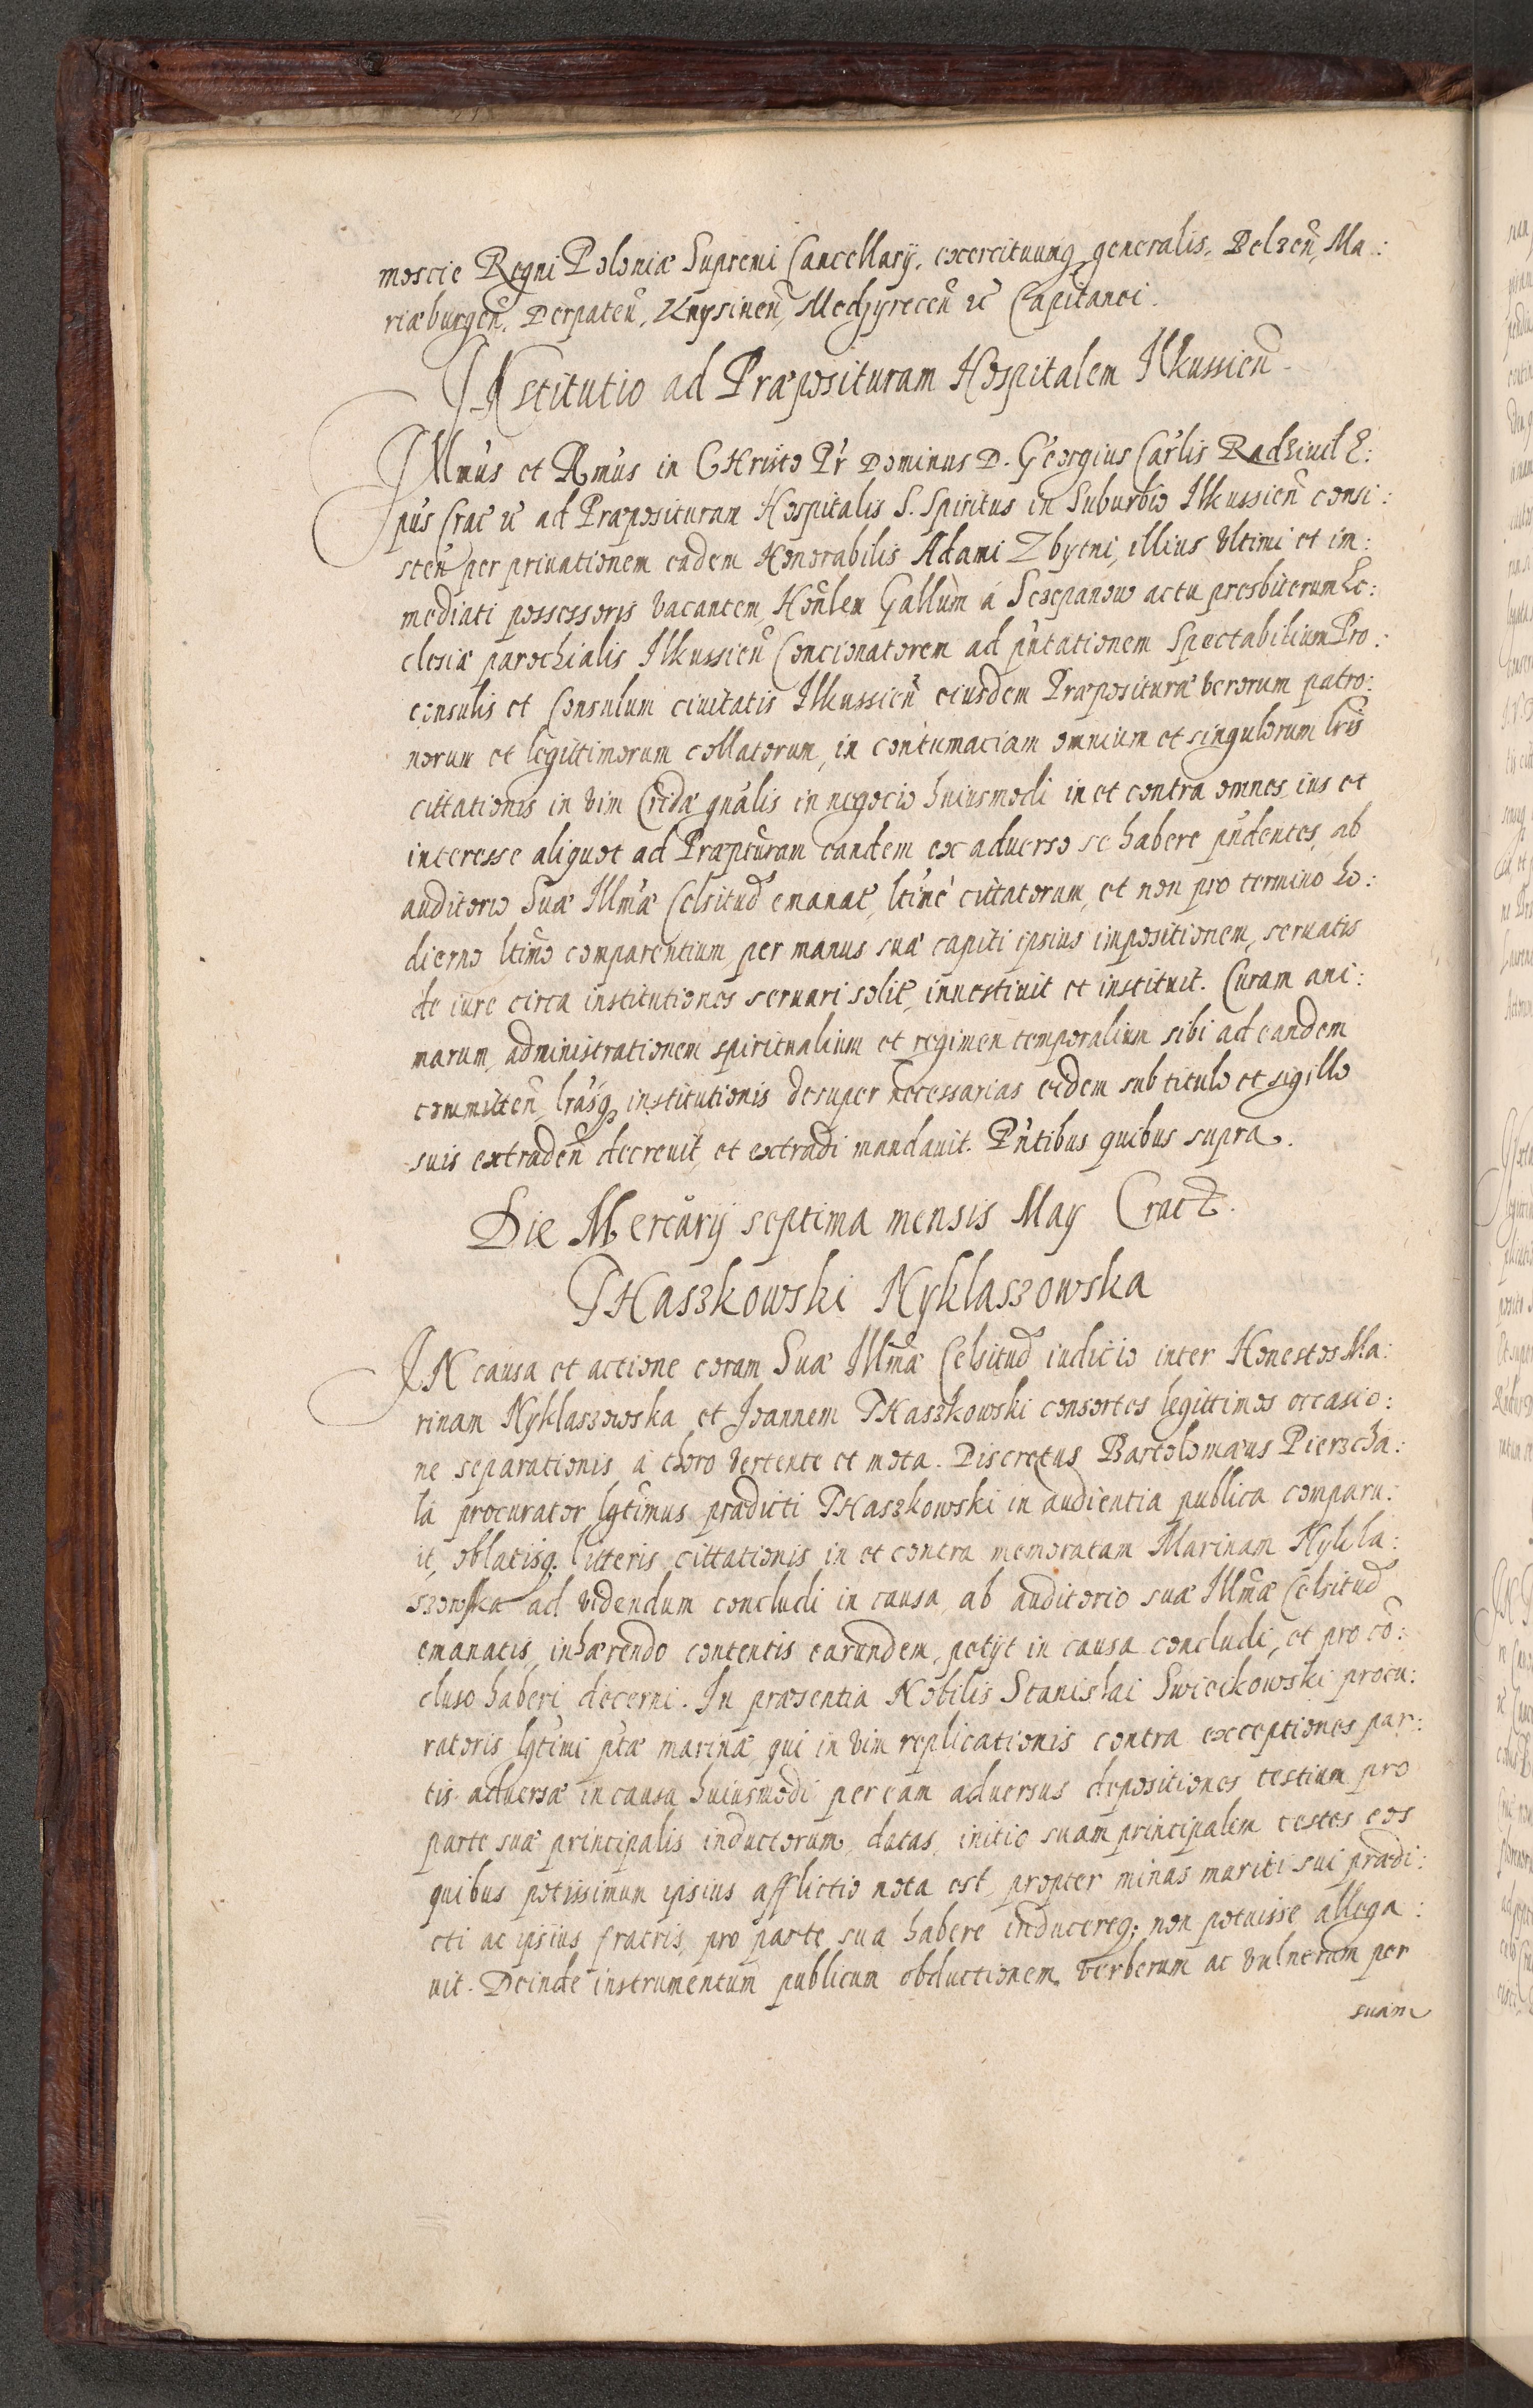 moscie Regni Poloniæ Supremi Cancellarij, exercituumq; generalis, Belzen̄, Ma:
riæburgen̄, Derpaten̄, Knysinen̄, Medzyrecen̄ &c Capitanei.
INstitutio ad Præposituram Hospitalem Ilkussien̄
Illmus et Rmus in CHristo Pr̄ Dominus D. Georgius Car̄lis Radziuil E:
pus Crac̄ &c ad Præposituram Hospitalis S. Spiritus in Suburbio Ilkussien̄ consi:
sten̄ per priuationem eadem Honorabilis Adami Zbytni, illius vltimi et im:
mediati possessoris vacantem, Hon̄lem Gallum á Sczepanow actu presbiterum Ec:
clesiæ parochialis Ilkussien̄ Concionatorem ad pn̄tationem Spectabilium Pro:
consulis et Consulum ciuitatis Ilkussien̄ eiusdem Præposituræ verorum patro:
norum et legittimorum collatorum, in contumaciam omnium et singulorum lrīs
cittationis in vim Cridæ gn̄alis in negocio huiusmodi in et contra omnes ius et
interesse aliquot ad Præptūram eandem ex aduerso se habere pn̄dentes, ab
auditorio Suæ Illmæ Celsitud̄ emanat̄, ltīmè cittatorum, et non pro termino ho:
dierno ltīmo comparentium, per manus suæ capiti ipsius impositionem, seruatis
de iure circa institutiones seruari solit̄, inuestiuit et instituit. Curam ani:
marum, administrationem spiritualium et regimen temporalium sibi ad eandem
committen̄, lrāsq; institutionis desuper necessarias eidem sub titulo et sigillo
suis extraden̄ decreuit, et extradi mandauit. Pn̄tibus quibus supra.
Die Mercurij septima mensis Maÿ Crac̄
THaszkowski Nyklaszowska
IN causa et actione coram Suæ Illmæ Celsitud̄ iudicio inter Honestos Ma:
rinam Nyklaszowska et Joannem THaszkowski consortes legittimos occasio:
ne separationis á thoro vertente et mota. Discretus Bartolomæus Pierzcha:
la procurator lgtīmus prædicti THaszkowski in audientia publica comparu:
it, oblatisq; litteris cittationis in et contra memoratam Marinam Nykla:
szowska ad videndum concludi in causa, ab auditorio suæ Illmæ Celsitud̄
emanatis, inhærendo contentis earundem, petijt in causa concludi, et pro cō:
cluso haberi decerni. In præsentia Nobilis Stanislai Swiecikowski procu:
ratoris lgtīmi ptæ marinæ, qui in vim replicationis contra exceptiones par:
tis aduersæ in causa huiusmodi per eam aduersus depositiones testium pro
parte suæ principalis inductorum, datas, initio suam principalem testes eos
quibus potissimum ipsius afflictio nota est, propter minas mariti sui prædi:
cti ac ipsius fratris, pro parte sua habere inducereq; non potuisse allega:
uit. Deinde instrumentum publicum obductionem verberum ac vulnerum per
suam